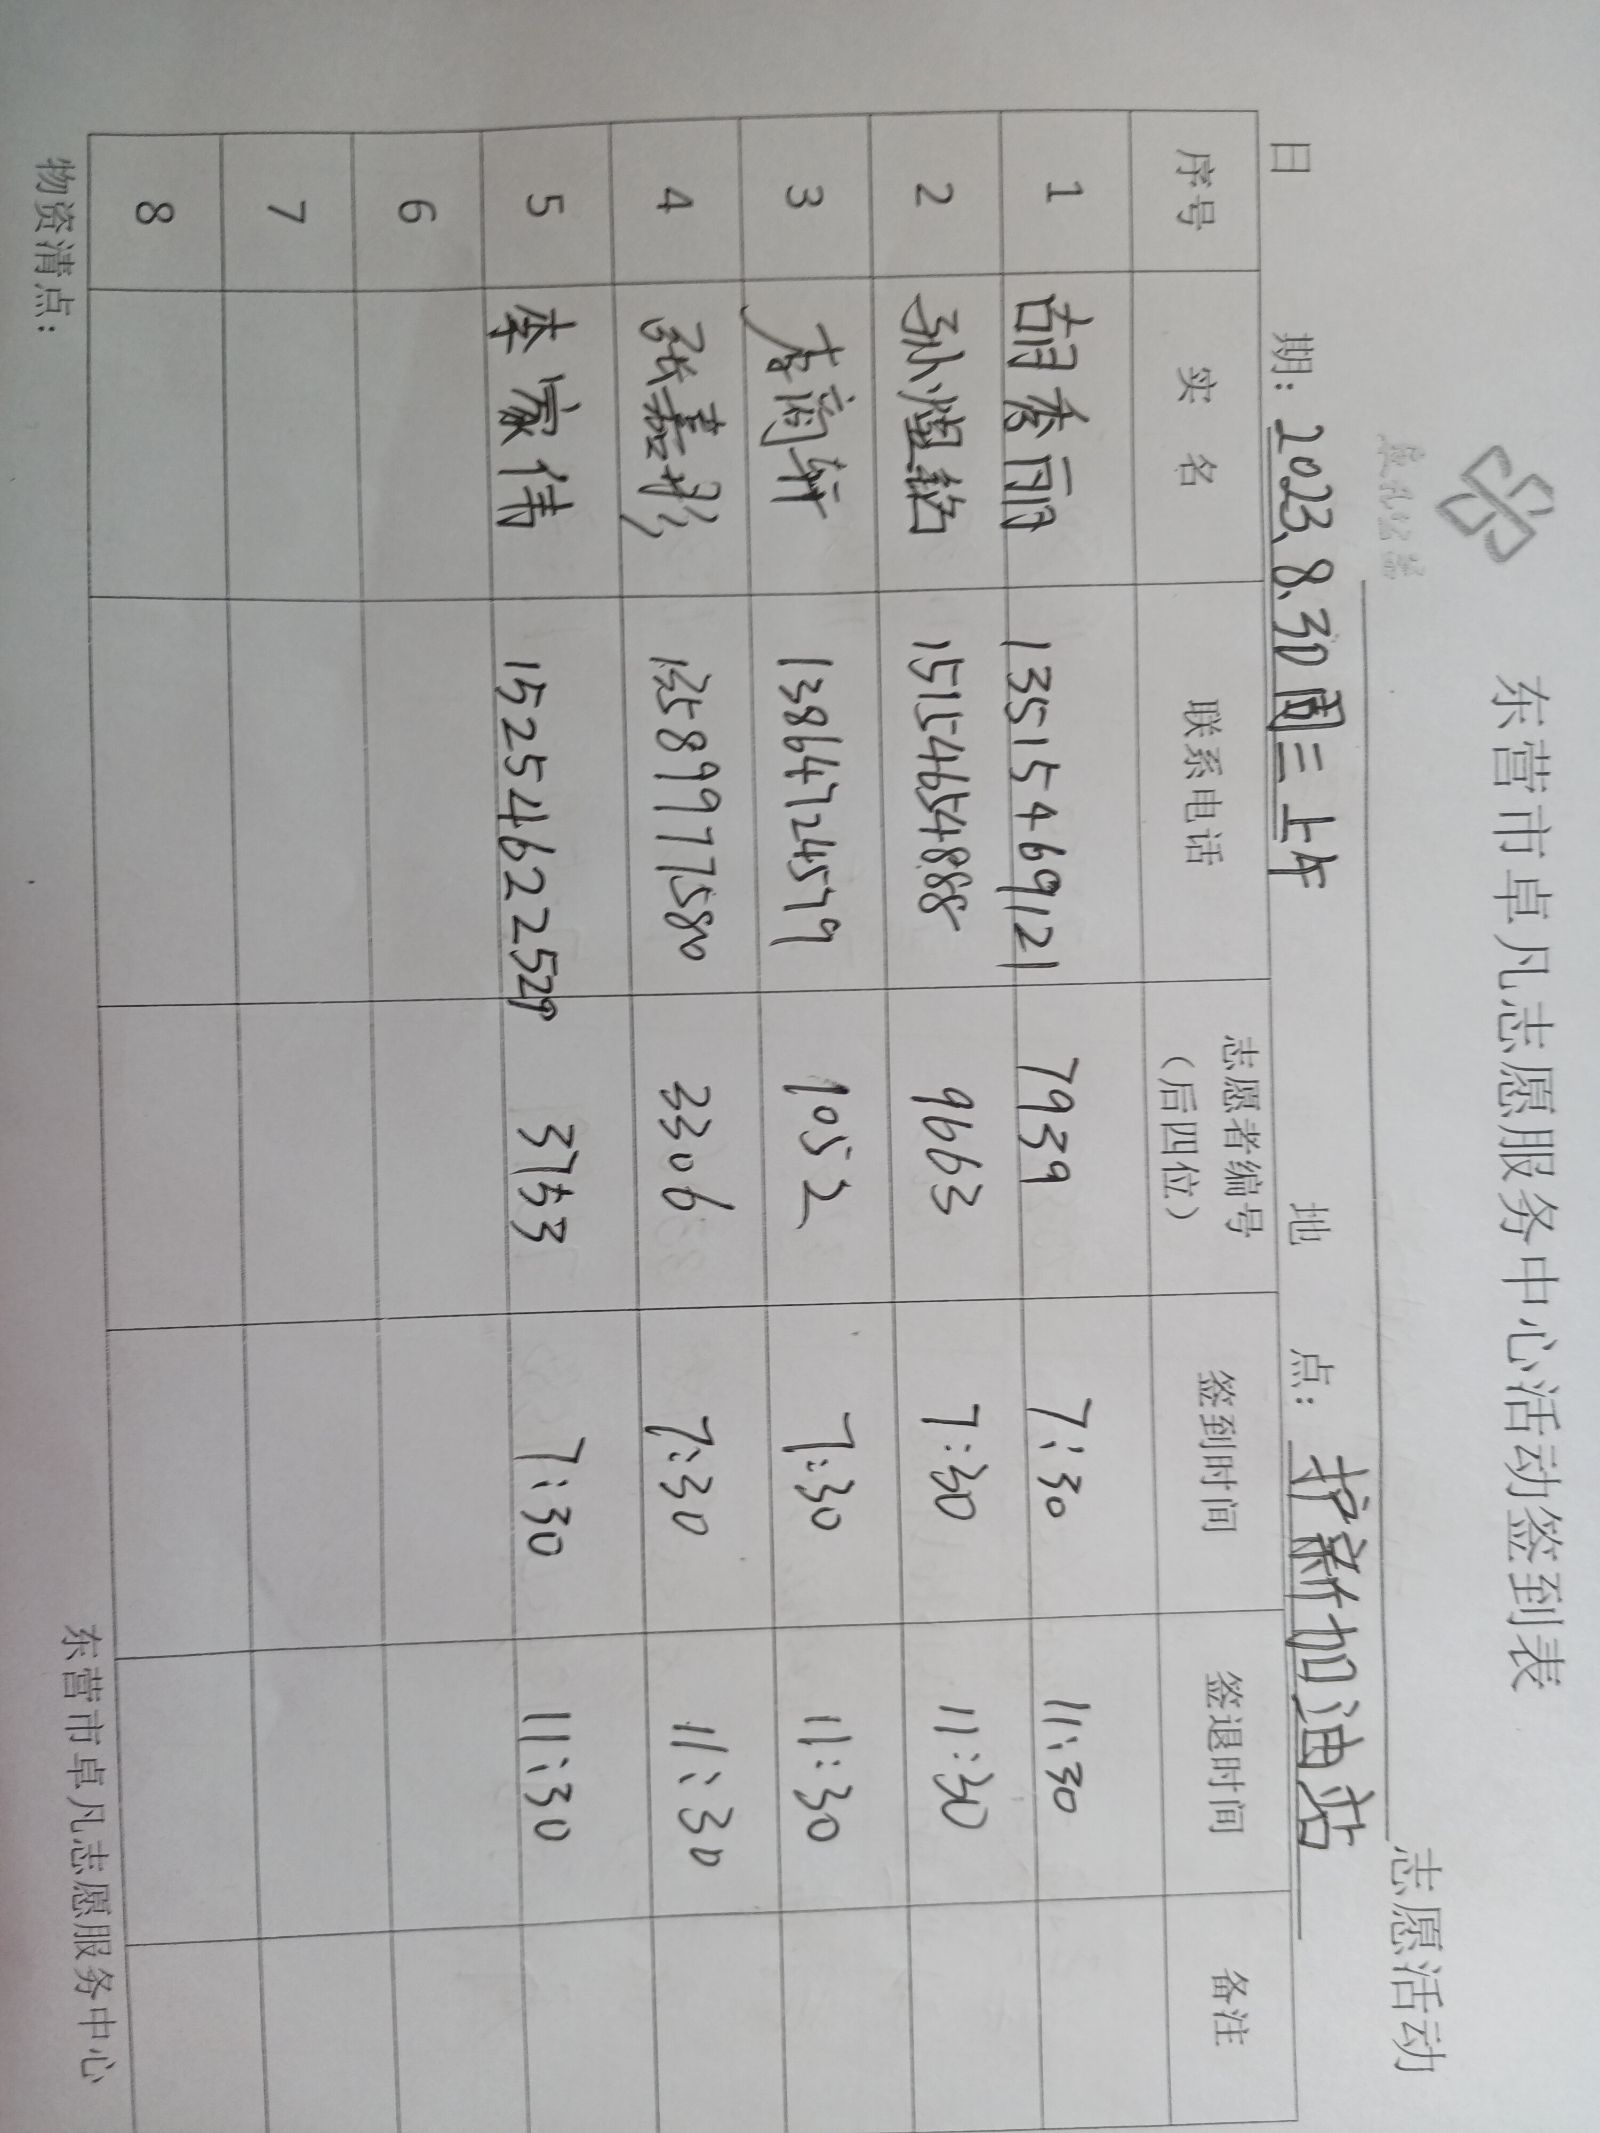 东营市卓凡志愿服务中心活动签到表
志愿活动
日 期：2023.8.30周三上午 地 点：护新加油站
序号 实 名 联系电话 志愿者编号（后四位） 签到时间 签退时间 备注
1 胡秀丽 13515469121 7939 7:30 11:30
2 孙煜铭 15154654888 9663 7:30 11:30
3 13864724579 1052 7:30 11:30
4 张嘉彬 13589977580 3306 7:30 11:30
5 李家伟 15254622529 3753 7:30 11:30
6
7
8
物资清点：
东营市卓凡志愿服务中心